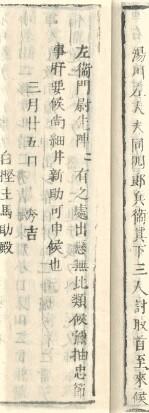 湯川左太夫同四郎兵衞其下三人討取首至來候
左衞門尉生陣ニ有之處出懸無比類候彌抽忠節
事肝要候尚細井新助可申候也
三月廿五日
秀吉
白樫主馬助殿